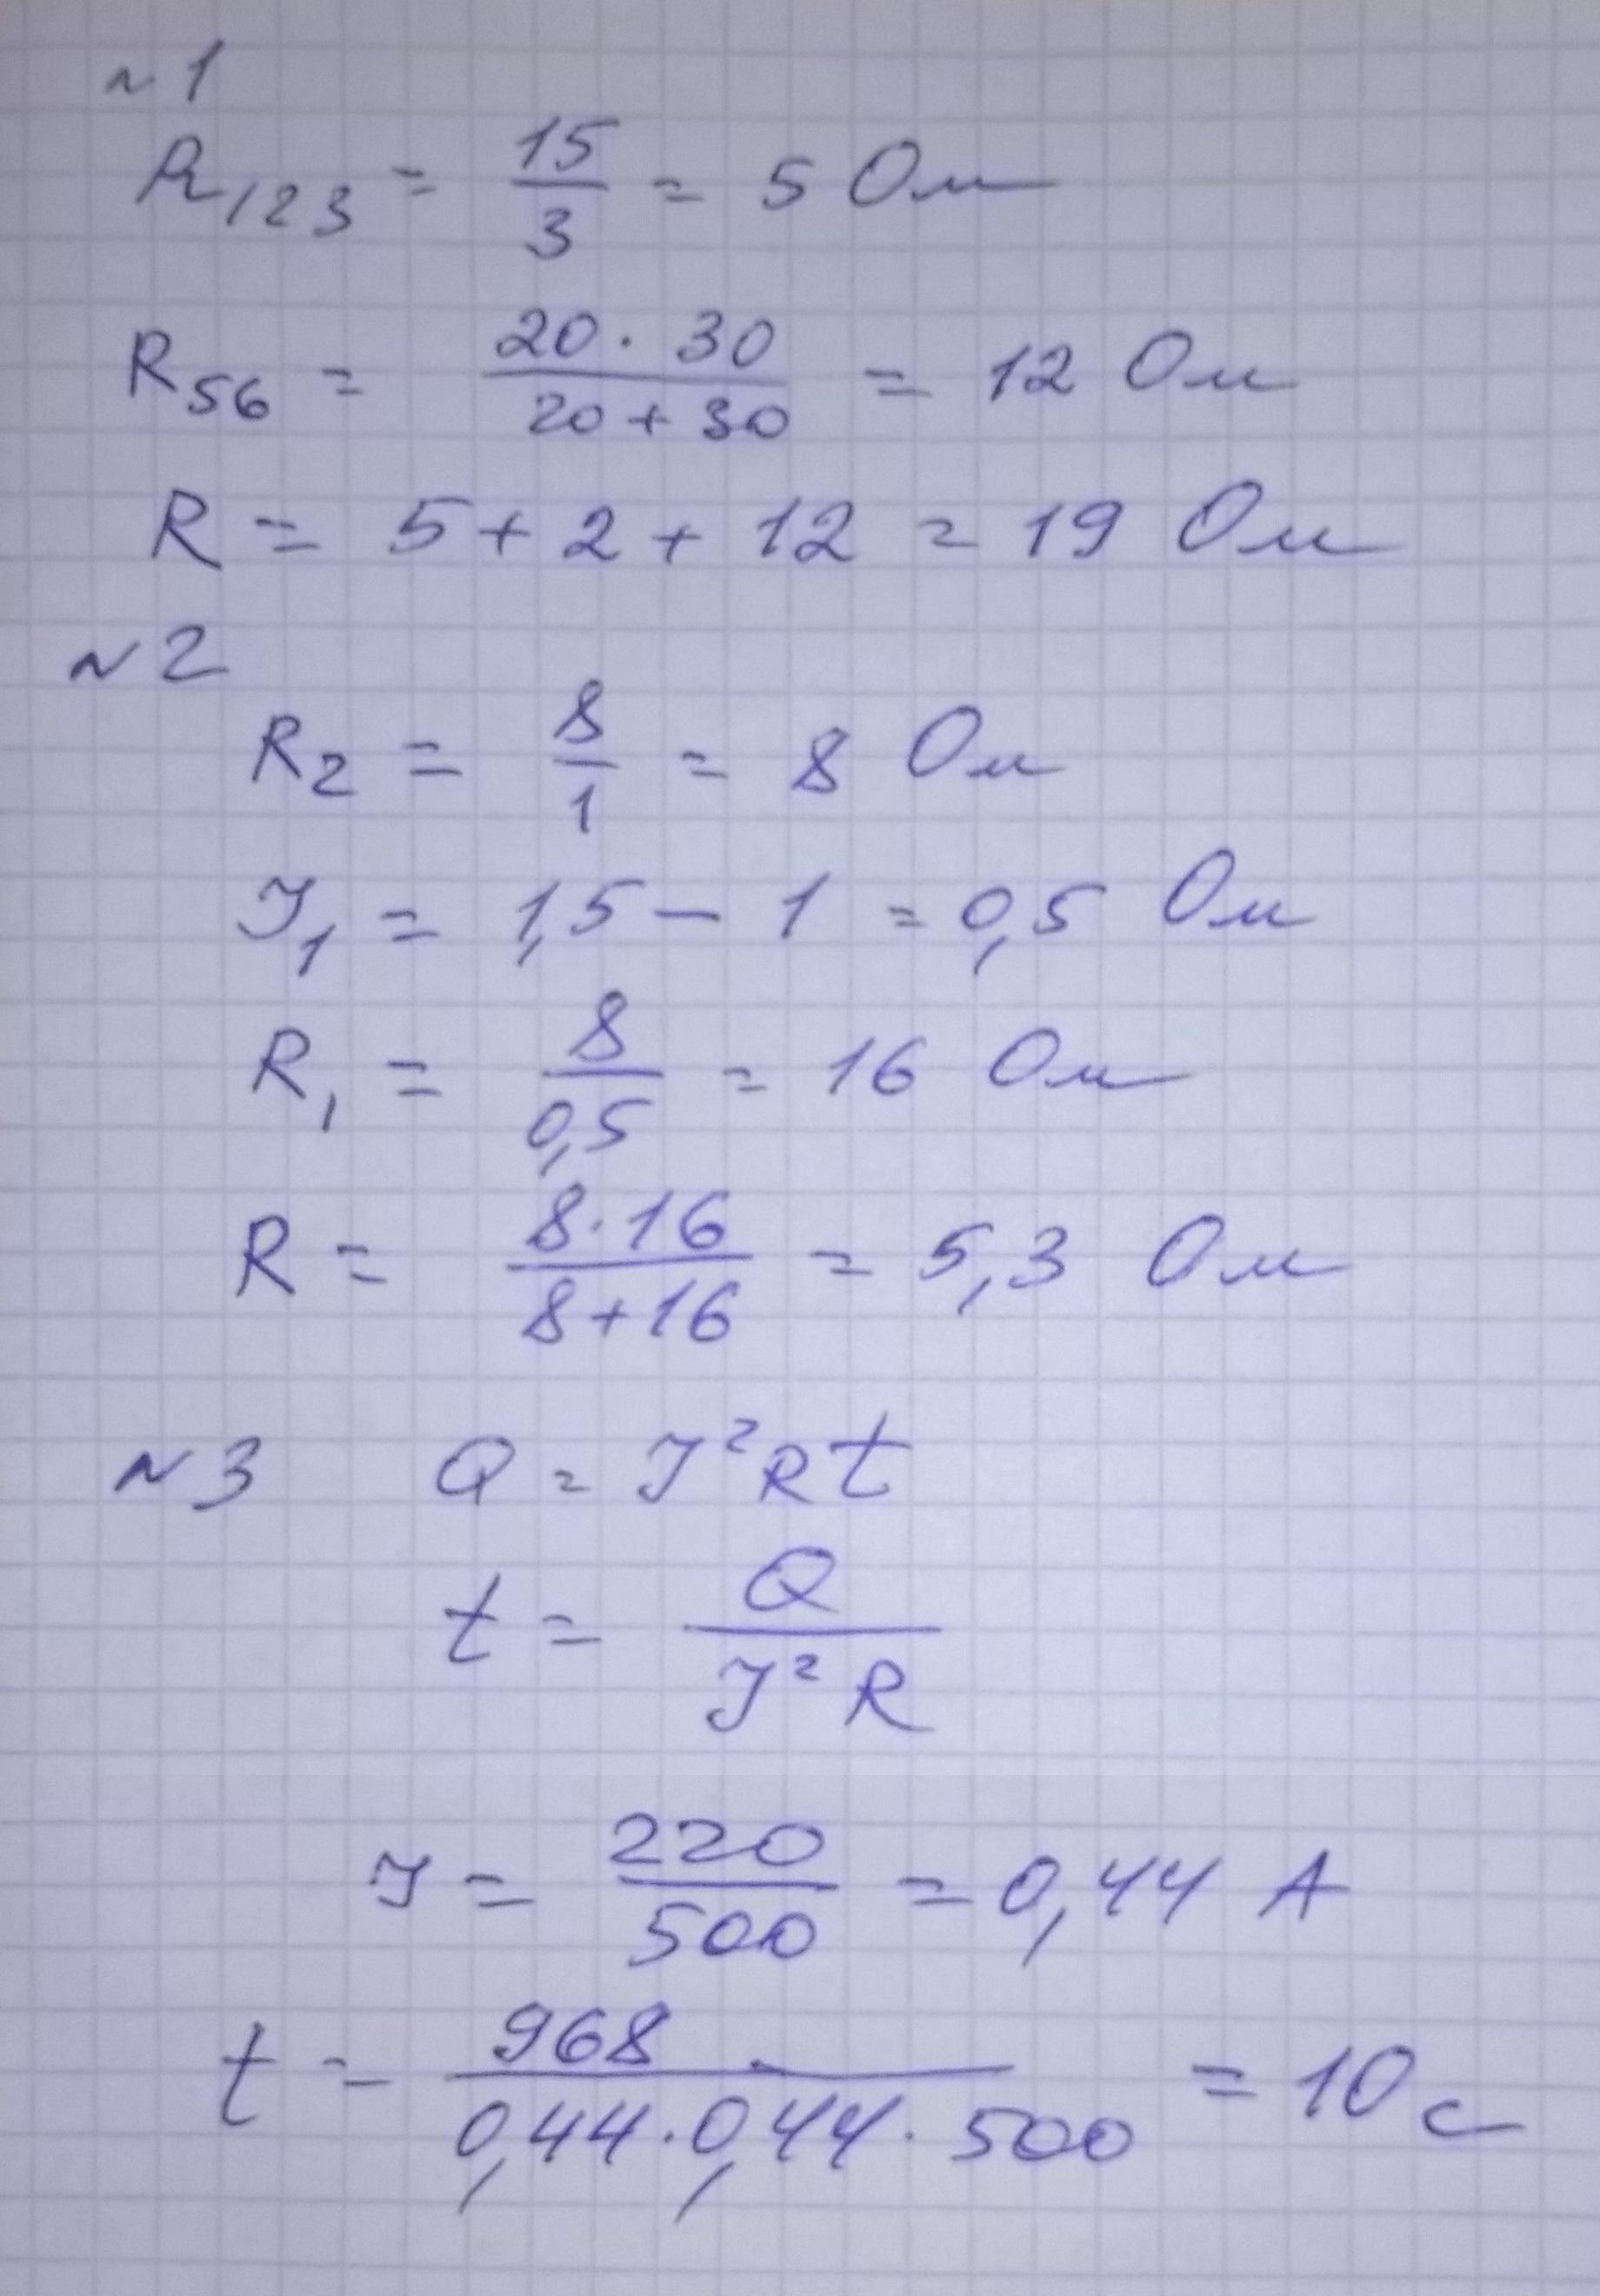 №1
R₁₂₃ = 15/3 = 5 Ом
R₅₆ = 20 · 30 / 20 + 30 = 12 Ом
R = 5 + 2 + 12 = 19 Ом
№2
R₂ = 8/1 = 8 Ом
I₁ = 1,5 − 1 = 0,5 Ом
R₁ = 8/0,5 = 16 Ом
R = 8·16 / 8+16 = 5,3 Ом
№3 Q = I²Rt
t = Q / I²R
I = 220/500 = 0,44 А
t = 968 / 0,44·0,44·500 = 10 с